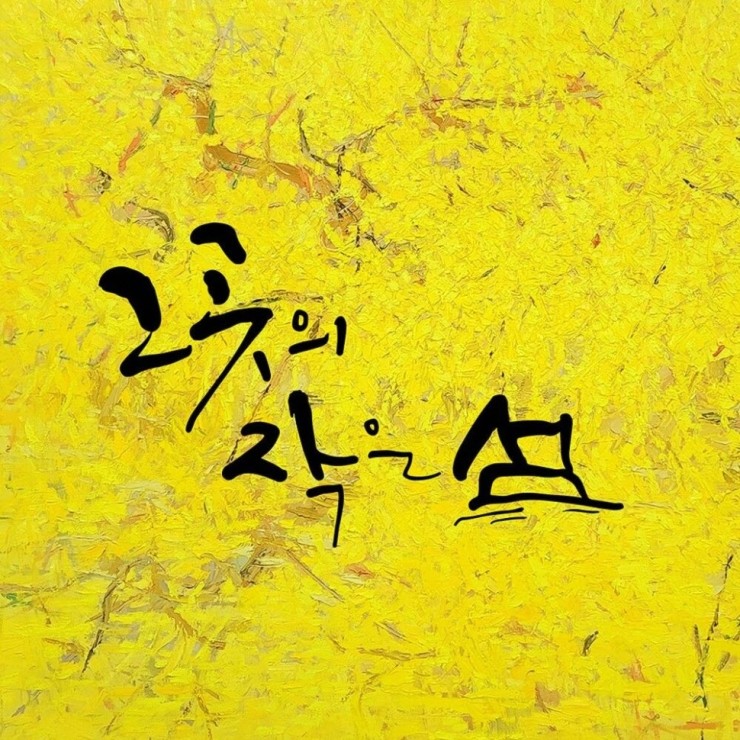 그곳의
작은 섬